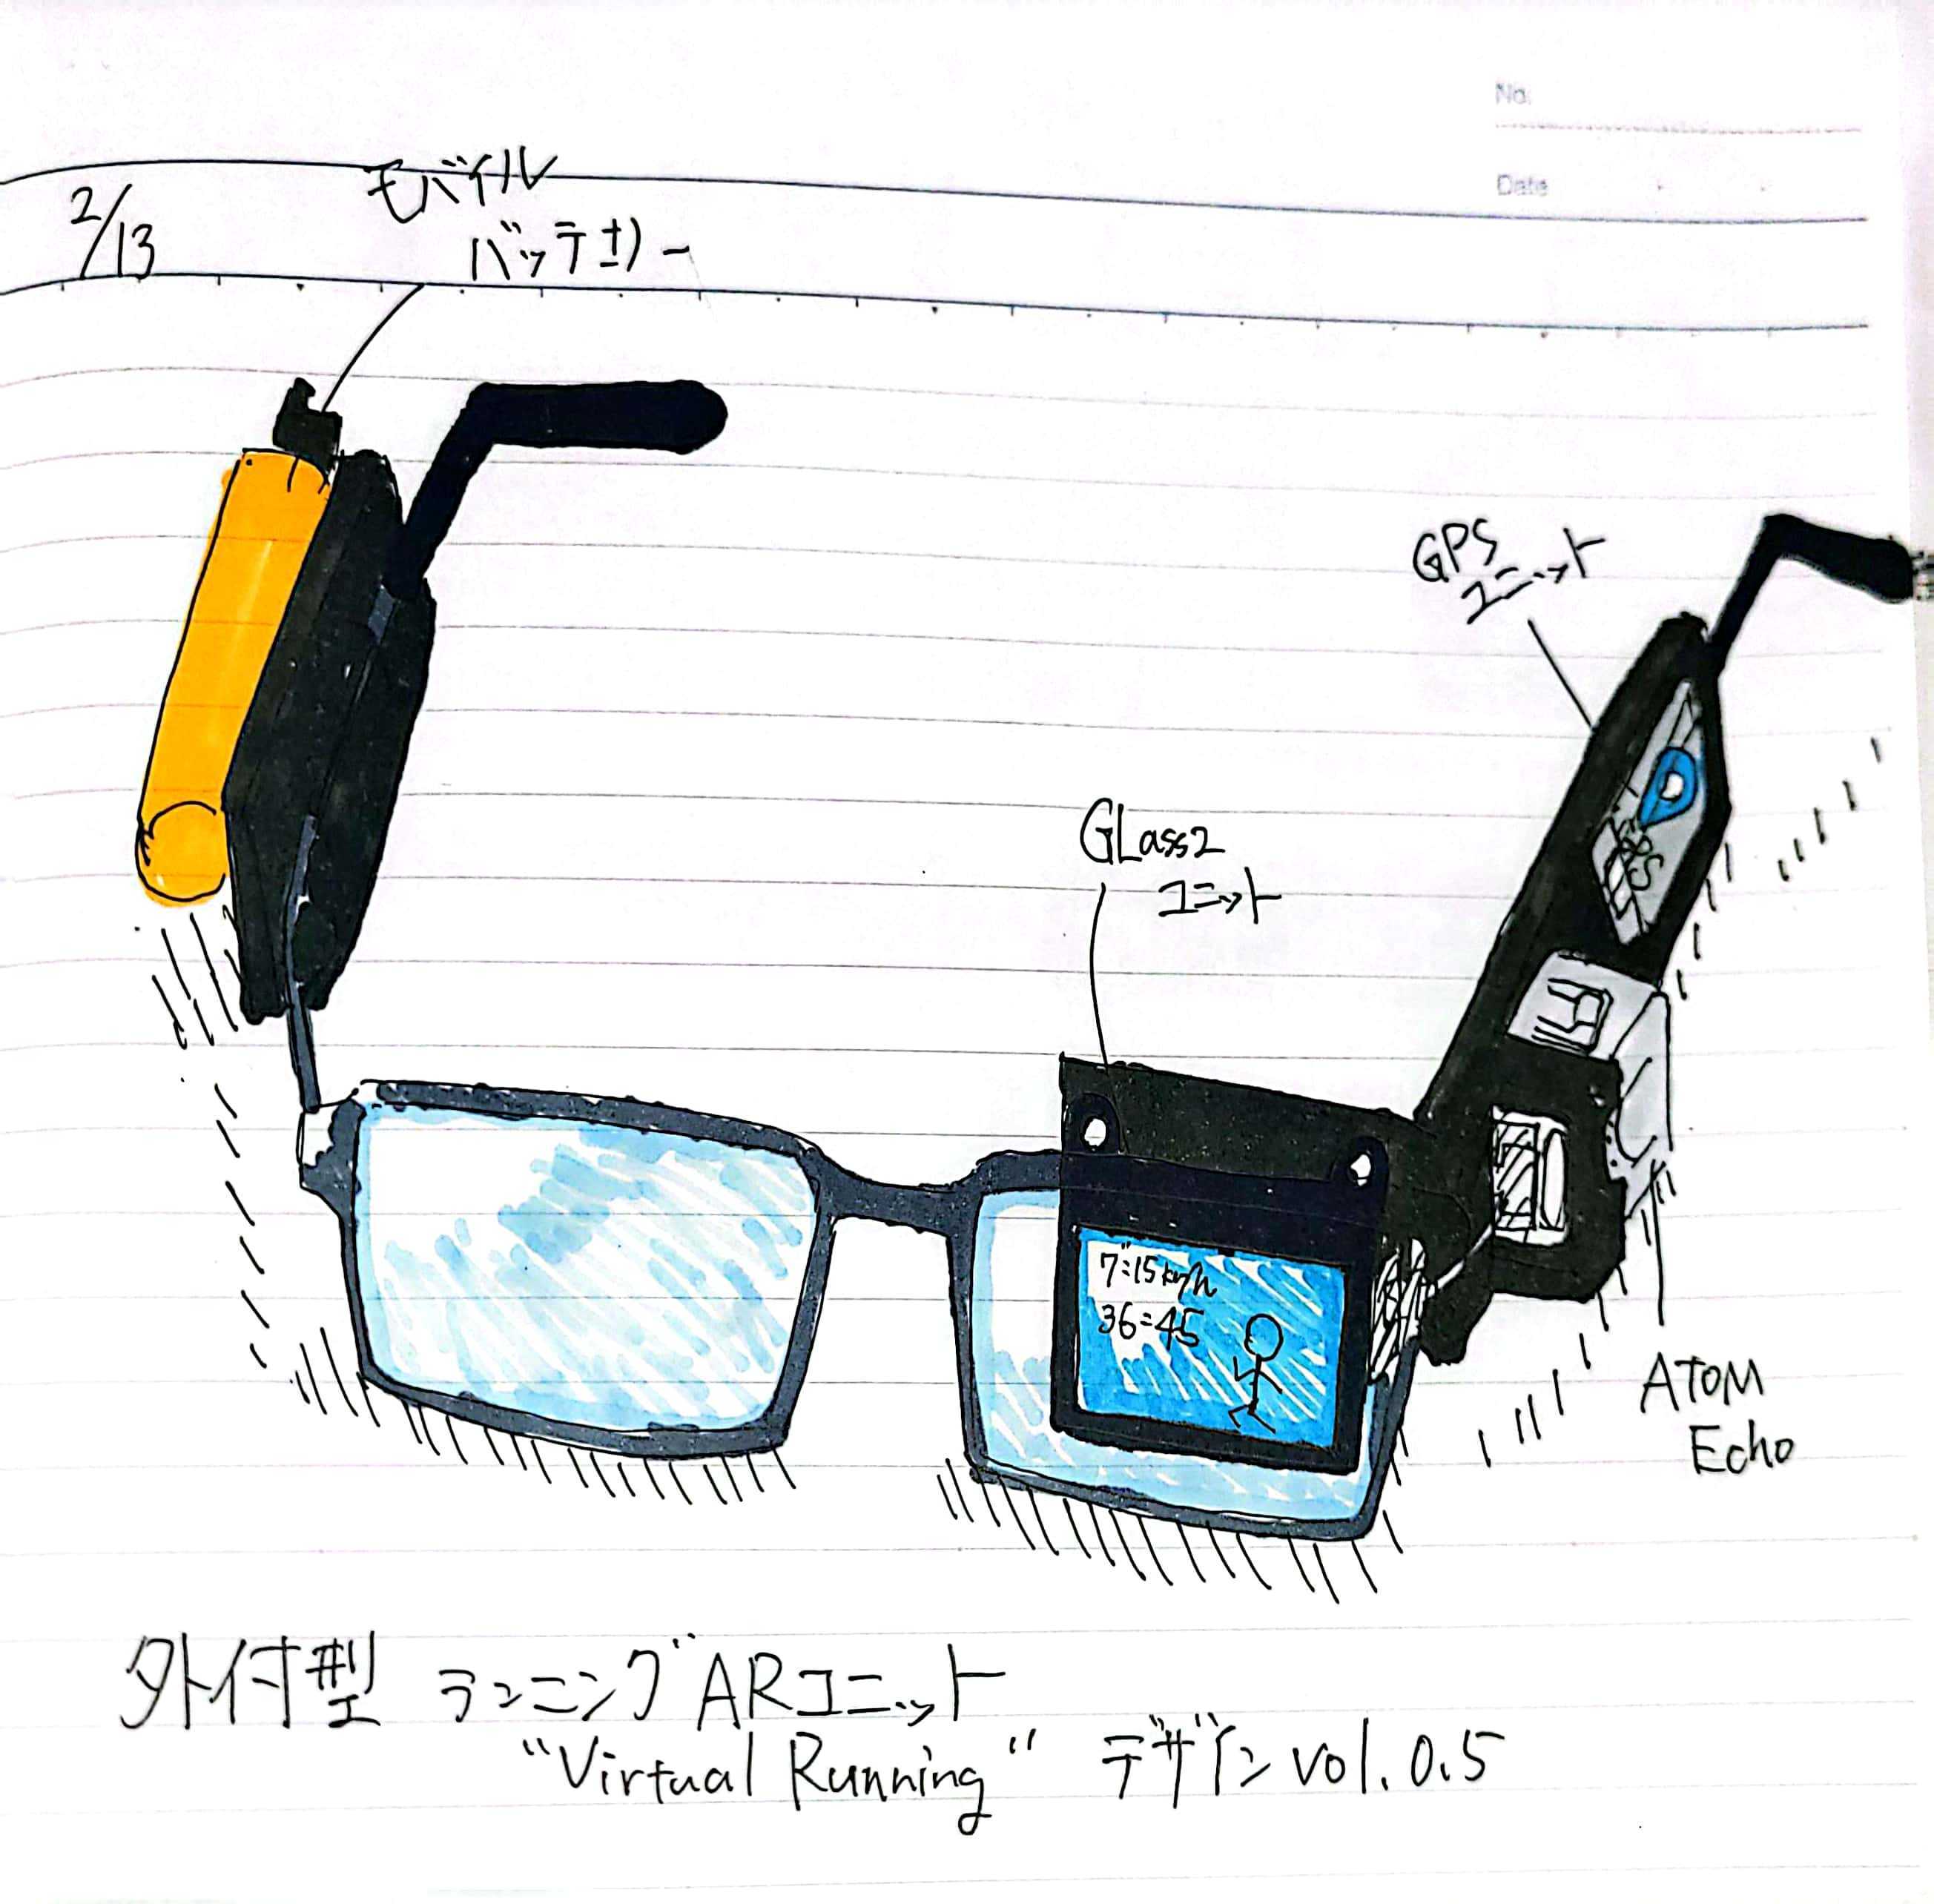 No.
Date
2/13
モバイル
バッテリー
GPS
ユニット
GPS
GLass2
ユニット
7:15km/h
36:45
ATOM
Echo
外付型 ランニングARユニット
"Virtual Running" デザイン vol.0.5